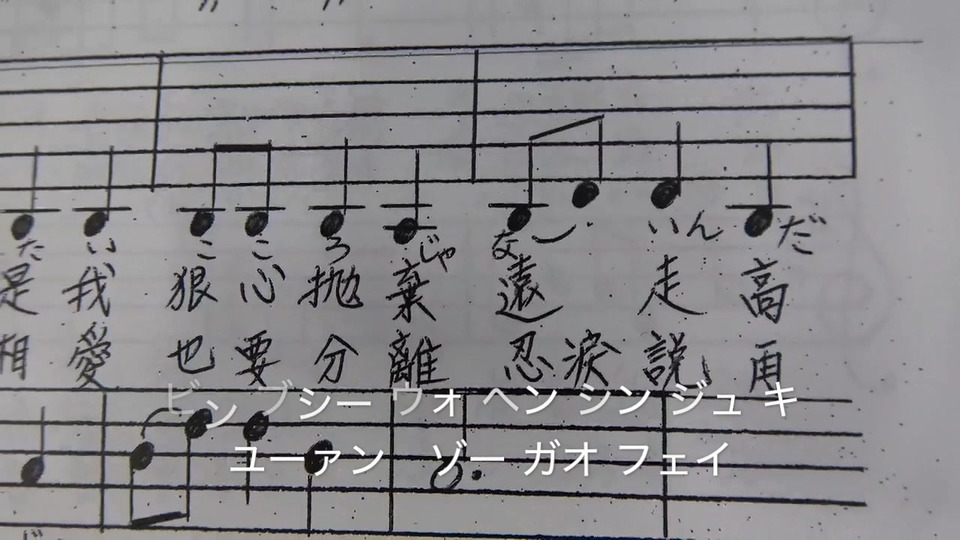 たい こころ じゃ な いん だ
是我 狠心抛棄 遠走高
相愛 也要分離 忍淚説再
ビン ブシー ウォ ヘン シン ジュ キ
ユーァン ゾー ガオ フェイ